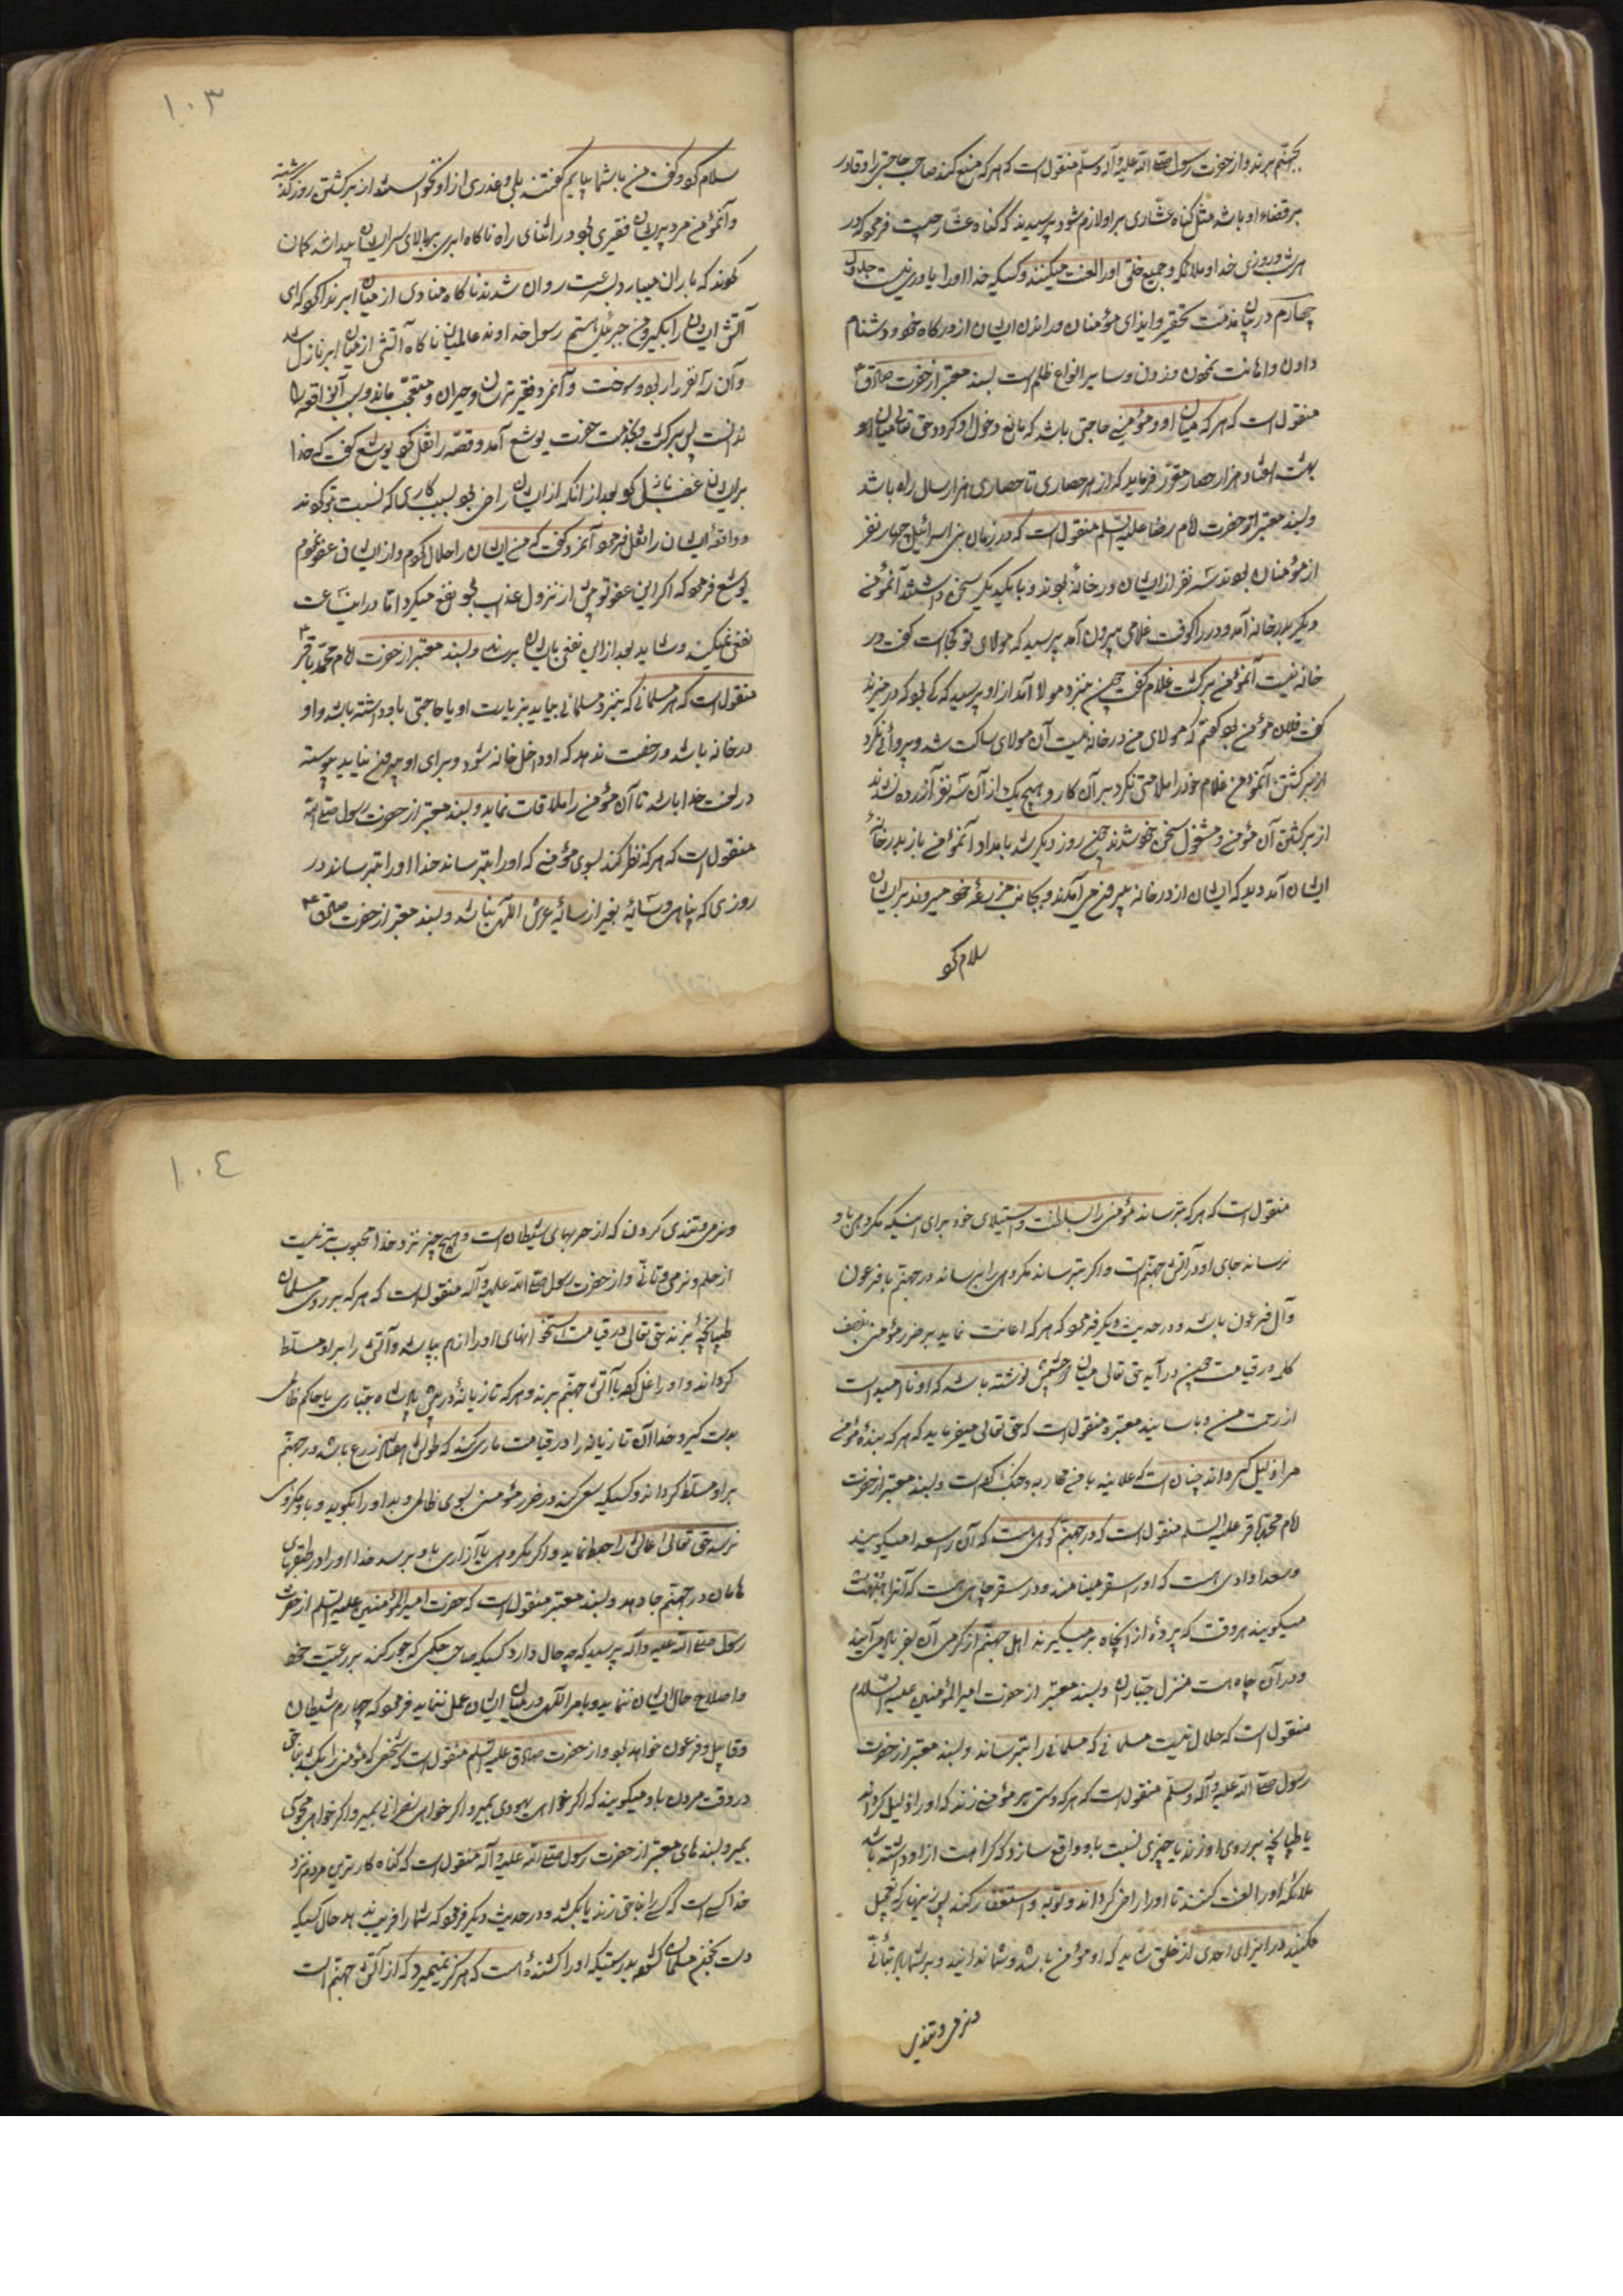 بجهنم برند و از حضرت رسول صلی الله علیه و آله وسلم منقول است که هر که منع کند صاحب حاجتی را و قادر
بر قضاء او باشد مثل گناه عشاری بر او لازم شود پرسیدند که گناه عشار چیست فرمود که در
هر شب و روزی خدا و ملائکه و جمیع خلق او را لعنت میکنند و کسیکه خدا او را یاوری نیست جلوه
چهارم در بیان مذمت تحقیر و ایذای مؤمنان و راندن ایشان از درگاه خود و دشنام
دادن و اهانت نمودن و زدن و سایر انواع ظلم است بسند معتبر از حضرت صادق ع
منقول است که هر که میان او و مؤمنی حاجبی باشد که مانع دخول او گردد حق تعالی میان او
بهشت هفتاد هزار حصار مقرر فرماید که از هر حصاری تا حصاری هزار سال راه باشد
و بسند معتبر از حضرت امام رضا علیه السلم منقول است که در زمان بنی اسرائیل چهار نفر
از مؤمنان بودند سه نفر از ایشان در خانه بودند و با یکدیگر سخن داشتند آن مؤمن
دیگر بدر خانه آمد و در را کوفت غلامی بیرون آمد پرسید که مولای تو کجاست گفت در
خانه نیست آن مؤمن برگشت غلام چون بنزد مولا آمد از او پرسید که کی بود که در میزند
گفت فلان مؤمن بود گفتم که مولای من در خانه نیست آن مولای ساکت شد و پروائی نکرد
از برگشتن آنمؤمن و غلام خود را ملامتی نکرد بر آن کار و هیچ یک از آن سه نفر آزرده نشدند
از برگشتن آن مؤمن و مشغول سخن خود شدند چون روز دیگر شد بامداد آنمؤمن باز بدر خانهٔ
ایشان آمد دید که ایشان از در خانه بیرون می آمدند و بجانب مزرعه خود میروند بر ایشان
سلام کرد
۱۰۳
سلام کرد و گفت من با شما بیایم گفتند بلی و عذری از او نخواستند از برگشتن روز گذشته
و آنمؤمن مرد پریشان فقیری بود در اثنای راه ناگاه ابری بر بالای سر ایشان پیدا شد گمان
کردند که باران میبارد بسرعت روان شدند ناگاه منادی از میان ابر ندا کرد که ای
آتش ایشان را بگیر و من جبرئیل هستم رسول خداوند عالمیان ناگاه آتشی از میان ابر نازل شد
و آن سه نفر را ربود و سوخت و آنمرد فقیر ترسان و حیران و متعجب ماند و سبب آنواقعه را
ندانست پس برگشت و بخدمت حضرت یوشع آمد و قصه را نقل کرد یوشع گفت که خدا
بر ایشان غضب نازل کرد بعد از آنکه از ایشان راضی بود بسبب کاری که نسبت بتو کردند
و واقعه ایشان را نقل فرمود آنمرد گفت که من ایشان را حلال کردم و از ایشان عفو نمودم
یوشع فرمود که اگر این عفو تو پیش از نزول عذاب بود نفع میکرد اما در این ساعت
نفعی نمیکند و شاید بعد از این نفعی بایشان برساند و بسند معتبر از حضرت امام محمد باقر ع
منقول است که هر مسلمانی که بنزد مسلمانی بیاید بزیارت او یا حاجتی باو داشته باشد و او
در خانه باشد و رخصت ندهد که او داخل خانه شود و برای او بیرون نیاید پیوسته
در لعنت خدا باشد تا آن مؤمن را ملاقات نماید و بسند معتبر از حضرت رسول صلی الله
منقول است که هر که نظر کند بسوی مؤمنی که او را بترساند خدا او را بترساند در
روزی که پناهی و سایهٔ بغیر از سایهٔ عرش الهی نباشد و بسند معتبر از حضرت صادق ع
منقول است که هر که بترساند مؤمنی را بسلطنت و استیلای خود برای اینکه مکروهی باو
نرسانه جای او در آتش جهنم است و اگر بترساند و مکروهی را برساند در جهنم با فرعون
و آل فرعون باشد و در حدیث دیگر فرمود که هر که اعانت نماید بر ضرر مؤمنی بنصف
کلمه در قیامت چون درآید حق تعالی میان دو چشمش نوشته باشد که او ناامید است
از رحمت من و باسانید معتبره منقول است که حق تعالی میفرماید که هر که بندهٔ مؤمن
مرا ذلیل گرداند چنان است که علانیه با من محاربه و جنگ کرده است و بسند معتبر از حضرت
امام محمد باقر علیه السلم منقول است که در جهنم کوهی است که آن را سعدا میگویند
و سعدا وادی هست که او را سقر مینامند و در سقر چاهی هست که آنرا هبهب
میگویند هر وقت که پردهٔ از آنچاه بر میگیرند اهل جهنم از گرمی آن بفریاد می آیند
و در آن چاه است منزل جباران و بسند معتبر از حضرت امیر المؤمنین علیه السلام
منقول است که حلال نیست مسلمانی که مسلمانی را بترساند و بسند معتبر از حضرت
رسول صلی الله علیه و آله وسلم منقول است که هر که دستی بر مؤمنی زند که او را ذلیل گرداند
یا طپانچه بر روی او زند یا چیزی نسبت باو واقع سازد که کراهت از او داشته باشد
ملائکه او را لعنت کنند تا او را راضی گرداند و توبه و استغفار کند پس زینهار که تعجیل
مکنید در ایذای احدی از خلق شاید که او مؤمن باشد و شما ندانید و بر شما باد بتأنی
و نرمی و تندی
۱۰٤
و نرمی و تندی کردن که از حربهای شیطان است و هیچ چیز نزد خدا محبوب تر نیست
از حلم و نرمی و تأنی و از حضرت رسول صلی الله علیه و آله منقول است که هر که بر روی مسلمان
طپانچهٔ بزند حق تعالی در قیامت استخوانهای او را از هم بپاشد و آتش را بر او مسلط
گرداند و او را غل کرده با آتش جهنم برند و هر که تازیانهٔ در پیش پادشاه جباری یا حاکم ظالمی
بدست گیرد خدا آن تازیانه را در قیامت ماری کند که طولش هفتاد زرع باشد و در جهنم
بر او مسلط گرداند و کسیکه سعی کند در ضرر مؤمن بسوی ظالمی و بد او را بگوید و باو مکروهی
نرسد حق تعالی اعمالش را حبط نماید و اگر مکروهی یا آزاری باو برسد خدا او را در طبقهای
هامان در جهنم جا دهد و بسند معتبر منقول است که حضرت امیر المؤمنین علیه السلم از حضرت
رسول صلی الله علیه و آله پرسید که چه حال دارد کسیکه صاحب حکمی که جور کند بر رعیت خود
و اصلاح حال ایشان ننماید و بامر الهی در میان ایشان عمل ننماید فرمود که چهارم شیطان
و قابیل و فرعون خواهد بود و از حضرت صادق علیه السلم منقول است که شخصی که مؤمنی را بکشد بناحق
در وقت مردن باو میگویند که اگر خواهی یهودی بمیر و اگر خواهی نصرانی بمیر و اگر خواهی مجوسی
بمیر و بسندهای معتبر از حضرت رسول صلی الله علیه و آله منقول است که گناه کارترین مردم نزد
خدا کسی است که کسی را بناحق زند یا بکشد و در حدیث دیگر فرمود که شما را فریب ندهد حال کسیکه
دست بخون مسلمان گشود بدرستیکه او را کشندهٔ است که هرگز نمیمیرد که از آتش جهنم است